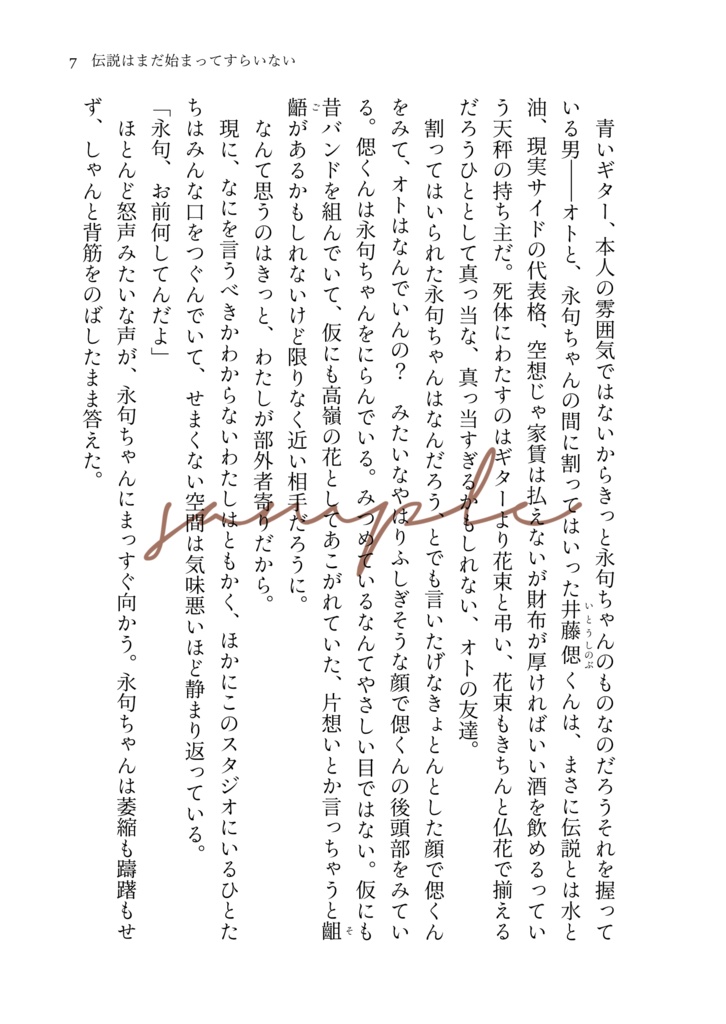 7 伝説はまだ始まってすらいない
青いギター、本人の雰囲気ではないからきっと永句ちゃんのものなのだろうそれを握って
いる男――オトと、永句ちゃんの間に割ってはいった井藤偲くんは、まさに伝説とは水と
いとうしのぶ
油、現実サイドの代表格、空想じゃ家賃は払えないが財布が厚ければいい酒を飲めるってい
う天秤の持ち主だ。死体にわたすのはギターより花束と弔い、花束もきちんと仏花で揃える
だろうひととして真っ当な、真っ当すぎるかもしれない、オトの友達。
割ってはいられた永句ちゃんはなんだろう、とでも言いたげなきょとんとした顔で偲くん
をみて、オトはなんでいんの？　みたいなやはりふしぎそうな顔で偲くんの後頭部をみてい
る。偲くんは永句ちゃんをにらんでいる。みつめているなんてやさしい目ではない。仮にも
昔バンドを組んでいて、仮にも高嶺の花としてあこがれていた、片想いとか言っちゃうと齟
そ
齬があるかもしれないけど限りなく近い相手だろうに。
ご
なんて思うのはきっと、わたしが部外者寄りだから。
現に、なにを言うべきかわからないわたしはともかく、ほかにこのスタジオにいるひとた
ちはみんな口をつぐんでいて、せまくない空間は気味悪いほど静まり返っている。
「永句、お前何してんだよ」
ほとんど怒声みたいな声が、永句ちゃんにまっすぐ向かう。永句ちゃんは萎縮も躊躇もせ
ず、しゃんと背筋をのばしたまま答えた。
sample